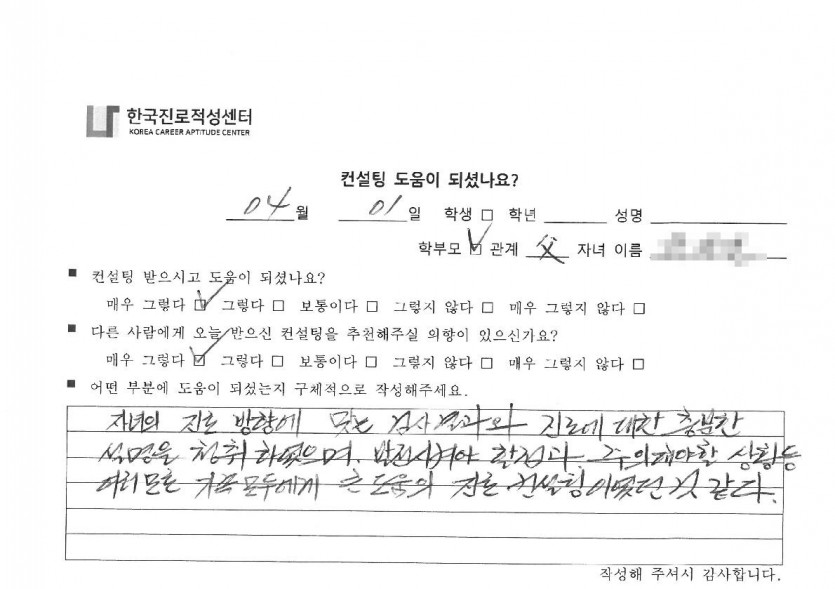 한국진로적성센터
KOREA CAREER APTITUDE CENTER
컨설팅 도움이 되셨나요?
04월 01일 학생 □ 학년 성명
학부모 ☑ 관계 父 자녀 이름
■ 컨설팅 받으시고 도움이 되셨나요?
매우 그렇다 ☑ 그렇다 □ 보통이다 □ 그렇지 않다 □ 매우 그렇지 않다 □
■ 다른 사람에게 오늘 받으신 컨설팅을 추천해주실 의향이 있으신가요?
매우 그렇다 ☑ 그렇다 □ 보통이다 □ 그렇지 않다 □ 매우 그렇지 않다 □
■ 어떤 부분에 도움이 되셨는지 구체적으로 작성해주세요.
자녀의 진로 방향에 맞는 검사결과와 진로에 대한 충분한
석명을 청취 하였으며, 발전시켜야 할점과 주의해야할 상황등
여러모로 가족모두에게 큰 도움의 진로 컨설팅이었던 것 같다.
작성해 주셔시 감사합니다.